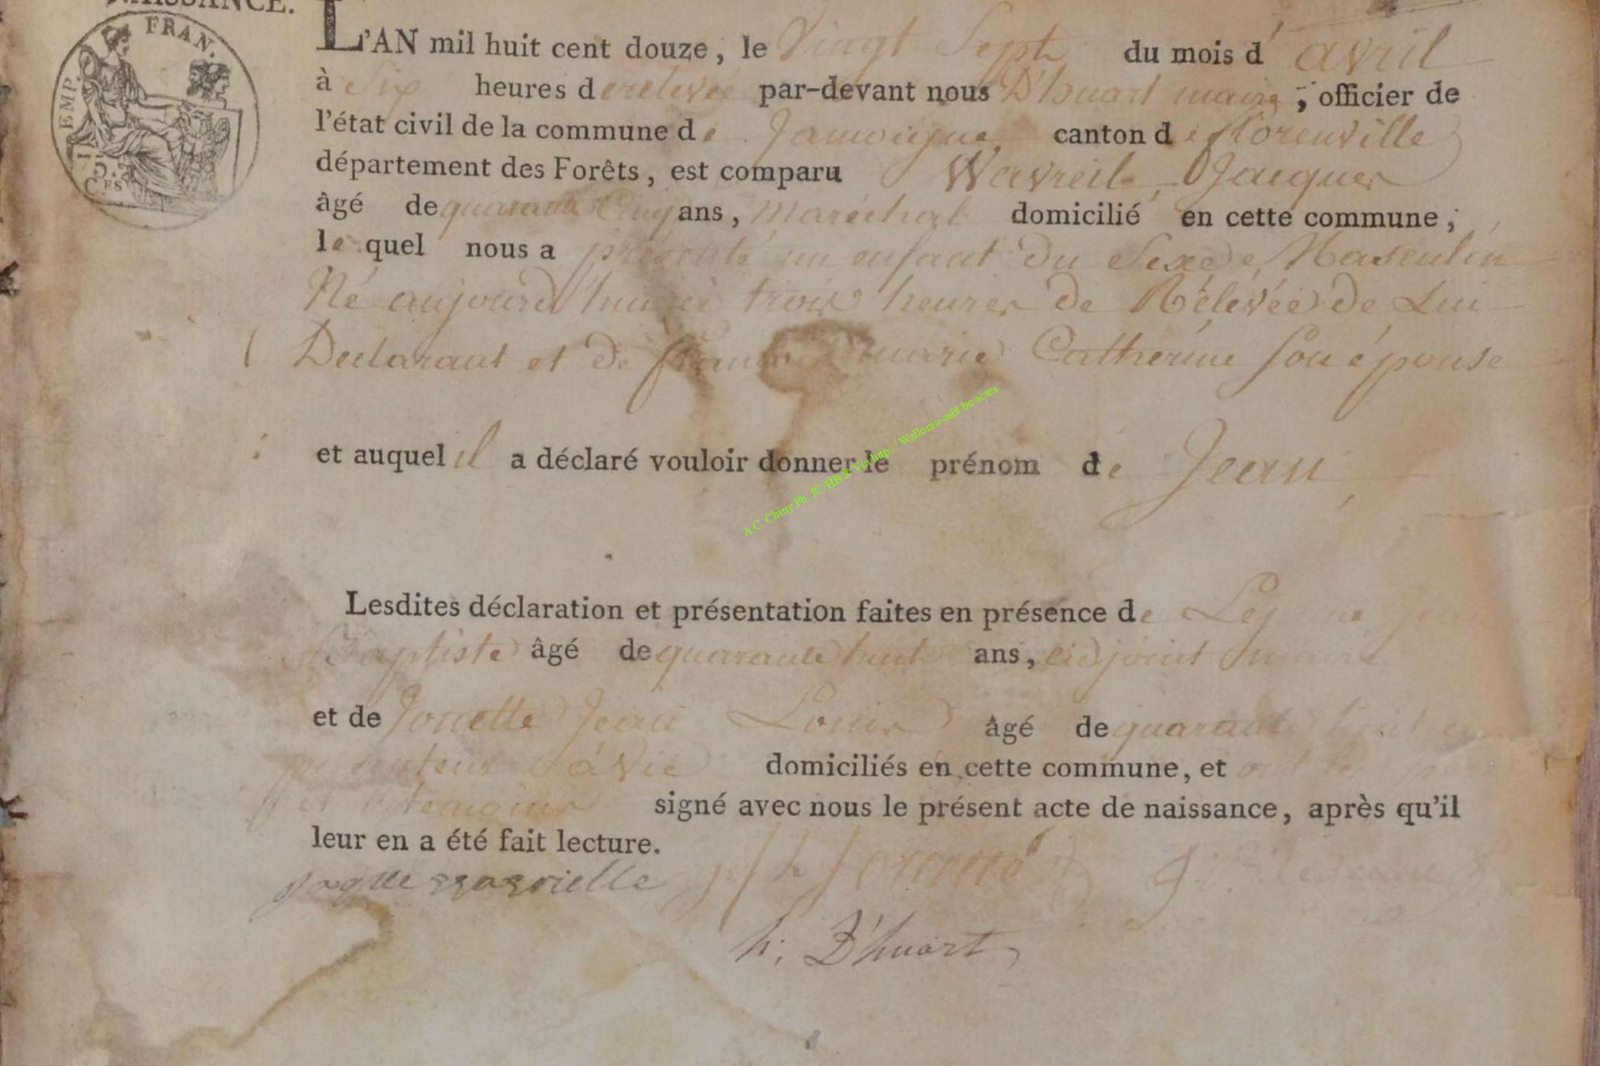 NAISSANCE.
EMP. FRAN.
L'AN mil huit cent douze, le Vingt Sept du mois d' avril
à Six heures de relevée par-devant nous D'huart maire, officier de
l'état civil de la commune de Jamoigne canton de florenville
département des Forêts, est comparu Wavreil Jacques
âgé de quarante Cinq ans, Maréchal domicilié en cette commune,
lequel nous a présenté un enfant du Sexe Masculin
Né aujourd'hui à trois heures de Rélévée de Lui
Déclarant et de marie Catherine Son épouse
et auquel il a déclaré vouloir donner le prénom de Jean
A.C. Chiny Ph. JC/HB & Via http:// Wallonia-asbl.be/actes
Lesdites déclaration et présentation faites en présence de
Baptiste âgé de quarante huit ans, adjoint maire
et de Jonette Jean Louis âgé de quarante
à vie domiciliés en cette commune, et ont
et témoins signé avec nous le présent acte de naissance, après qu'il
leur en a été fait lecture.
jaque
h: D'huart